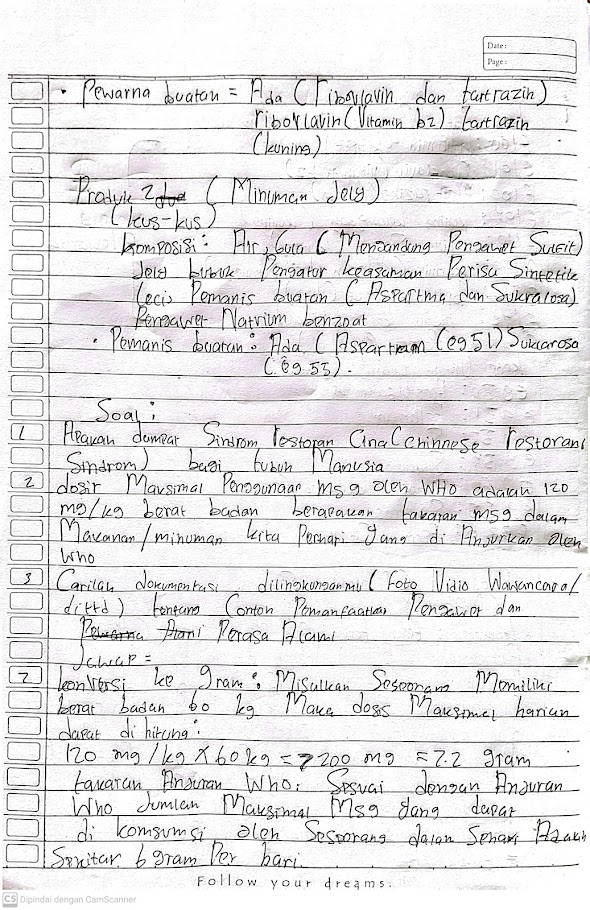 Date:
Page:
• Pewarna buatan = Ada (riboflavin dan tartrazin)
riboflavin (Vitamin b2) tartrazin
(kuning)
Produk 2 (Minuman Jely)
(kus-kus)
komposisi: Air, Gula (Mengandung Pengawet Sulfit)
Jely bubuk Pengatur keasaman Perisa Sintetik
Leci Pemanis buatan (Aspartma dan Sukralosa)
Pengawet Natrium benzoat
• Pemanis buatan: Ada (Aspartam (e951) Sukarosa
(e955).
Soal:
1 Apakah dampat Sindrom restoran Cina (chinnese restoran
Sindrom) bagi tubuh Manusia
2 dosir Maksimal Penggunaan msg oleh WHO adalah 120
mg/kg berat badan berapakah takaran msg dalam
Makanan/minuman kita Perhari yang di Anjurkan oleh
Who
3 Carilah dokumentasi dilingkunganmu (foto Vidio Wawancara/
) tentang Contoh Pemanfaatan Pengawet dan
Perasa Alami
Jawap =
2 konversi ke gram: Misalkan Seseorang Memiliki
berat badan 60 kg Maka dosis Maksimal harian
dapat di hitung:
120 mg/kg X 60 kg = 7200 mg = 7.2 gram
takaran Anjuran Who: Sesuai dengan Anjuran
Who Jumlah Maksimal Msg yang dapat
di komsumsi oleh Seseorang dalan Sehari Adalah
Sekitar 6 gram Per hari.
Follow your dreams.
CS Dipindai dengan CamScanner